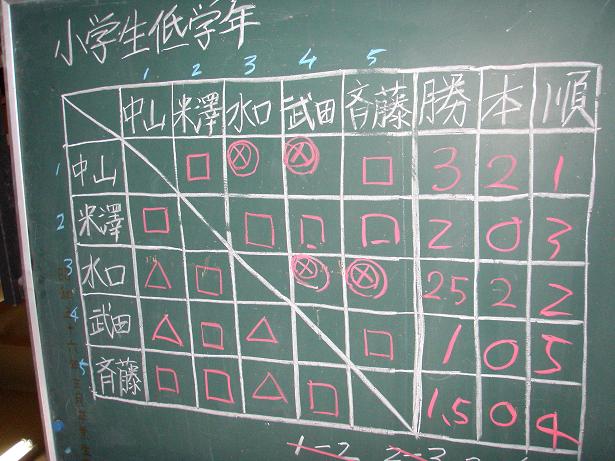 小学生低学年
1 2 3 4 5
中山 米澤 水口 武田 斉藤 勝 本 順
1 中山 □ ⊗ ⊗ □ 3 2 1
2 米澤 □ □ □ □ 2 0 3
3 水口 △ □ ⊗ ⊗ 2.5 2 2
4 武田 △ □ △ □ 1 0 5
5 斉藤 □ □ △ □ 1.5 0 4
1-2 2-3